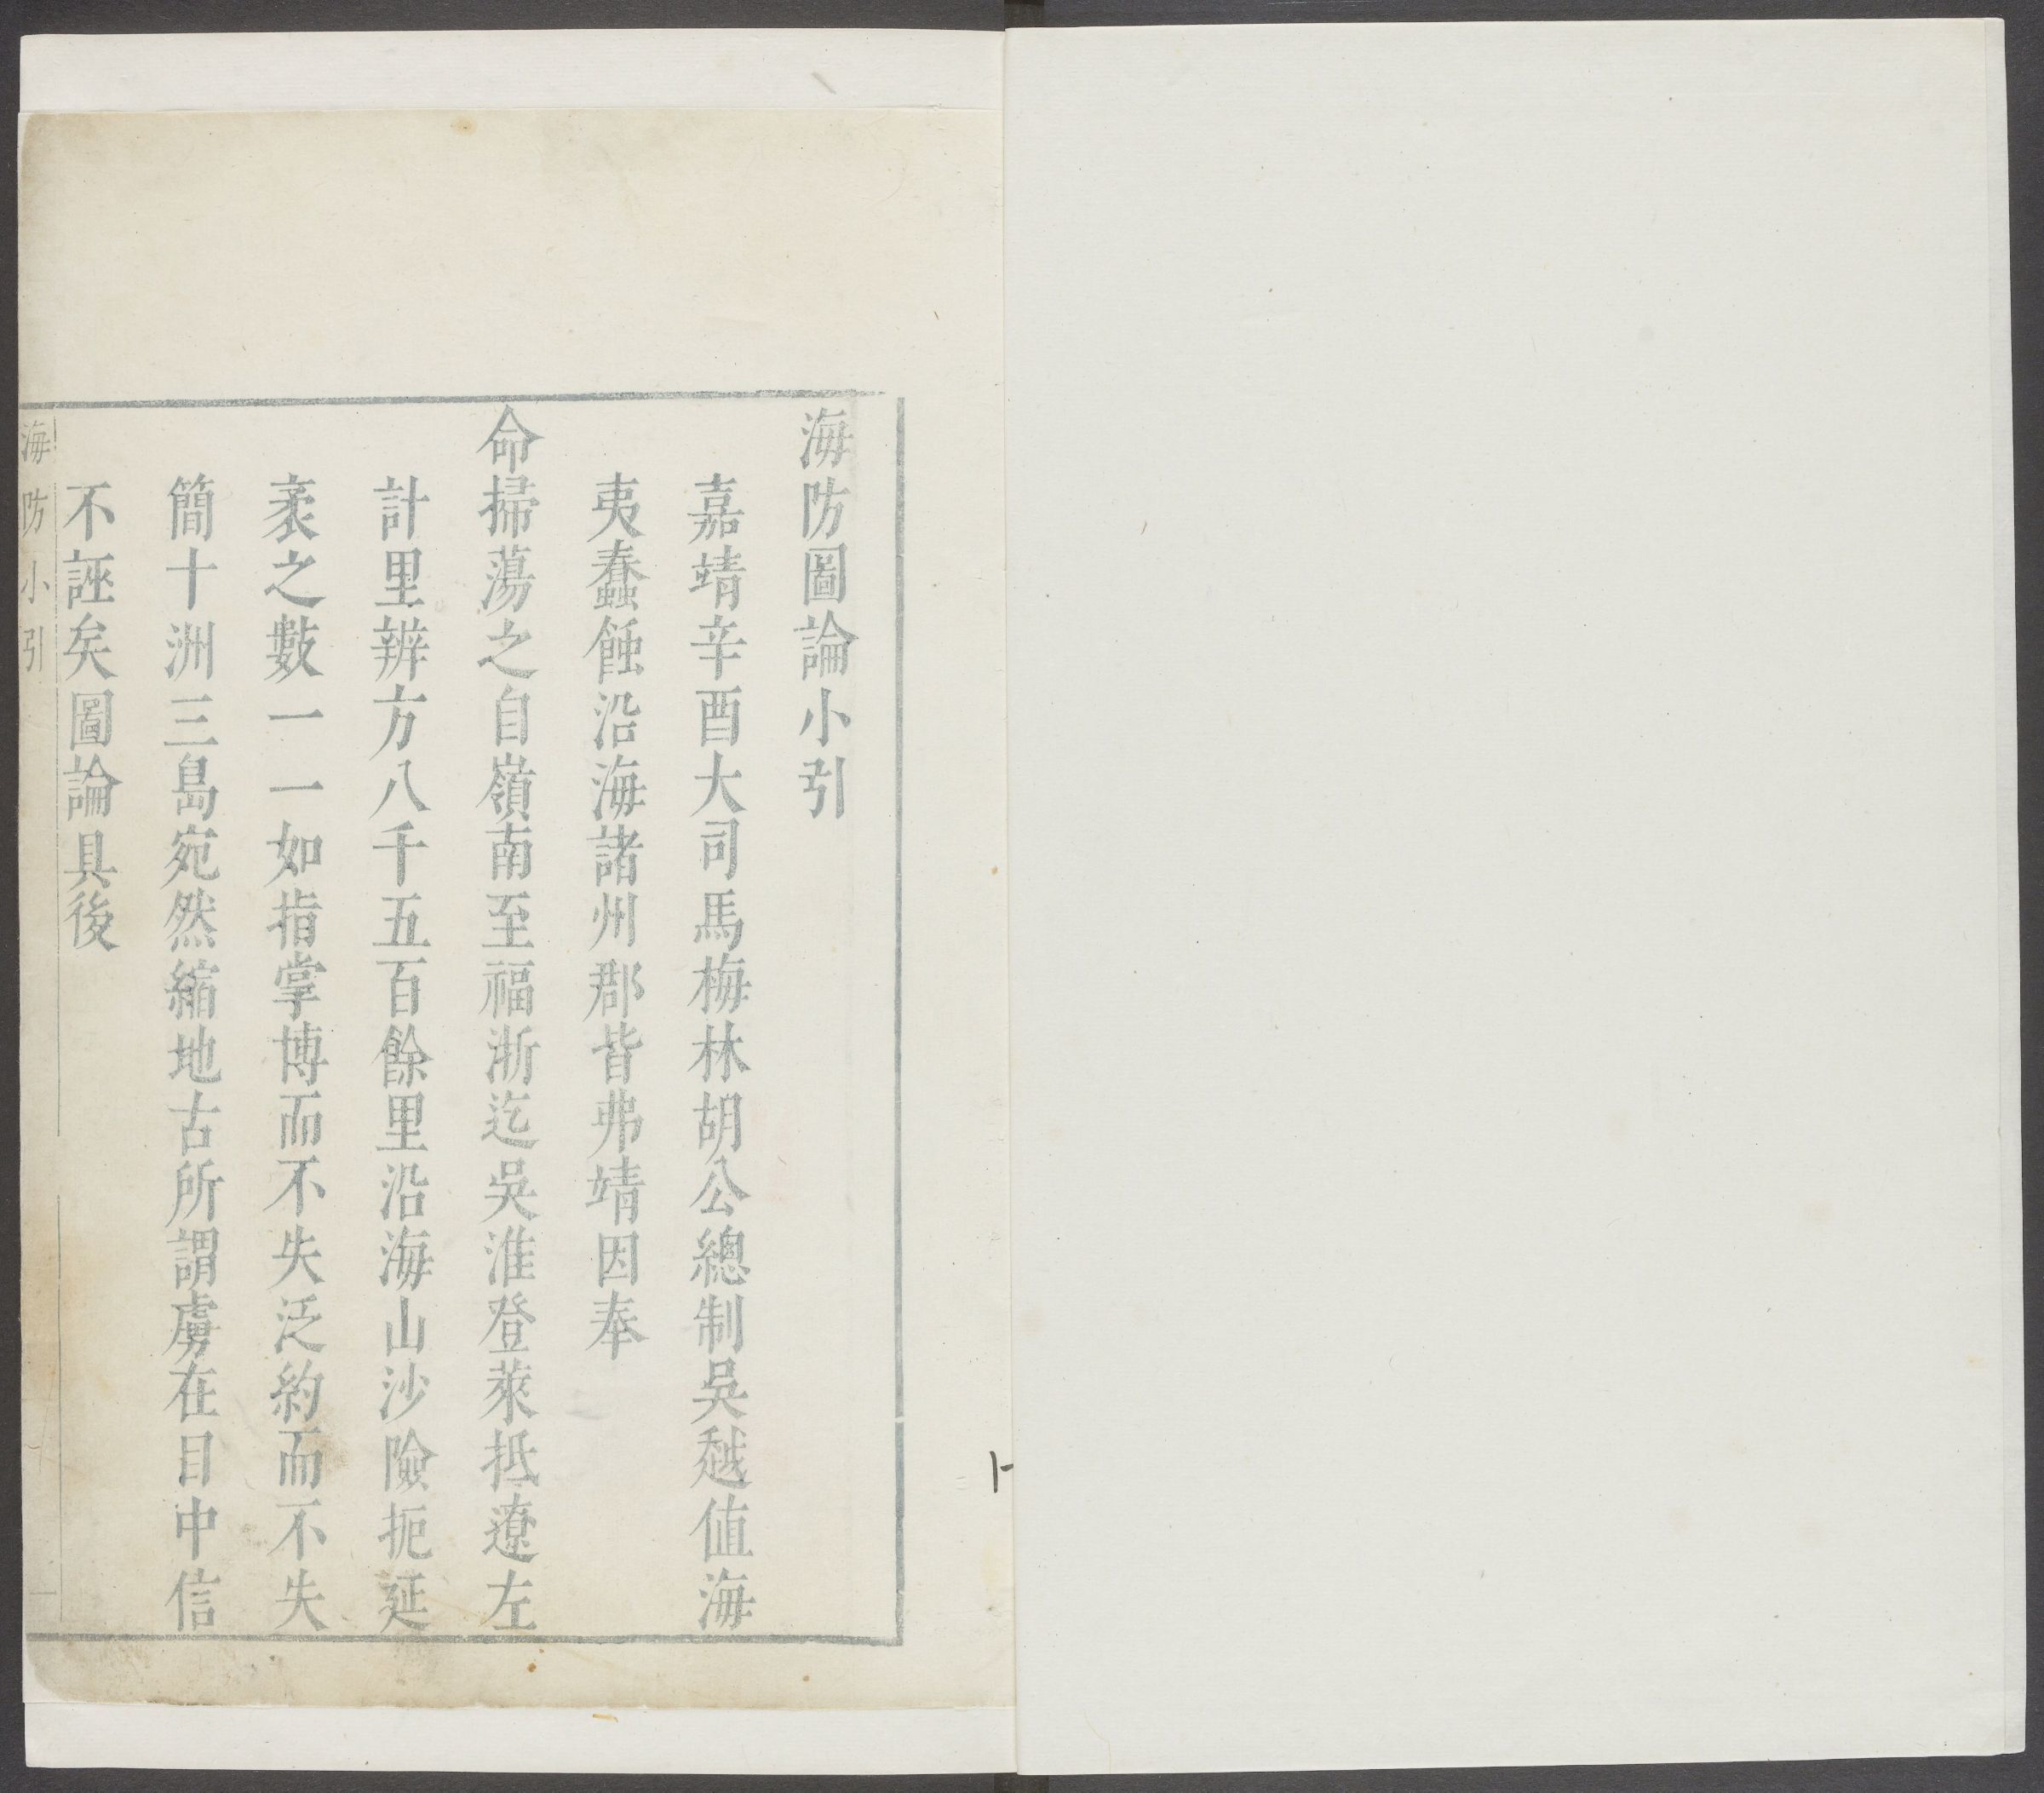 海防圖論小引
嘉靖辛酉大司馬梅林胡公總制吳越值海
夷蠢蝕沿海諸州郡皆弗靖因奉
命掃蕩之自嶺南至福浙迄吳淮登萊抵遼左
計里辨方八千五百餘里沿海山沙險扼延
袤之數一一如指掌博而不失泛約而不失
簡十洲三島宛然縮地古所謂虜在目中信
不誣矣圖論具後
海防小引 一